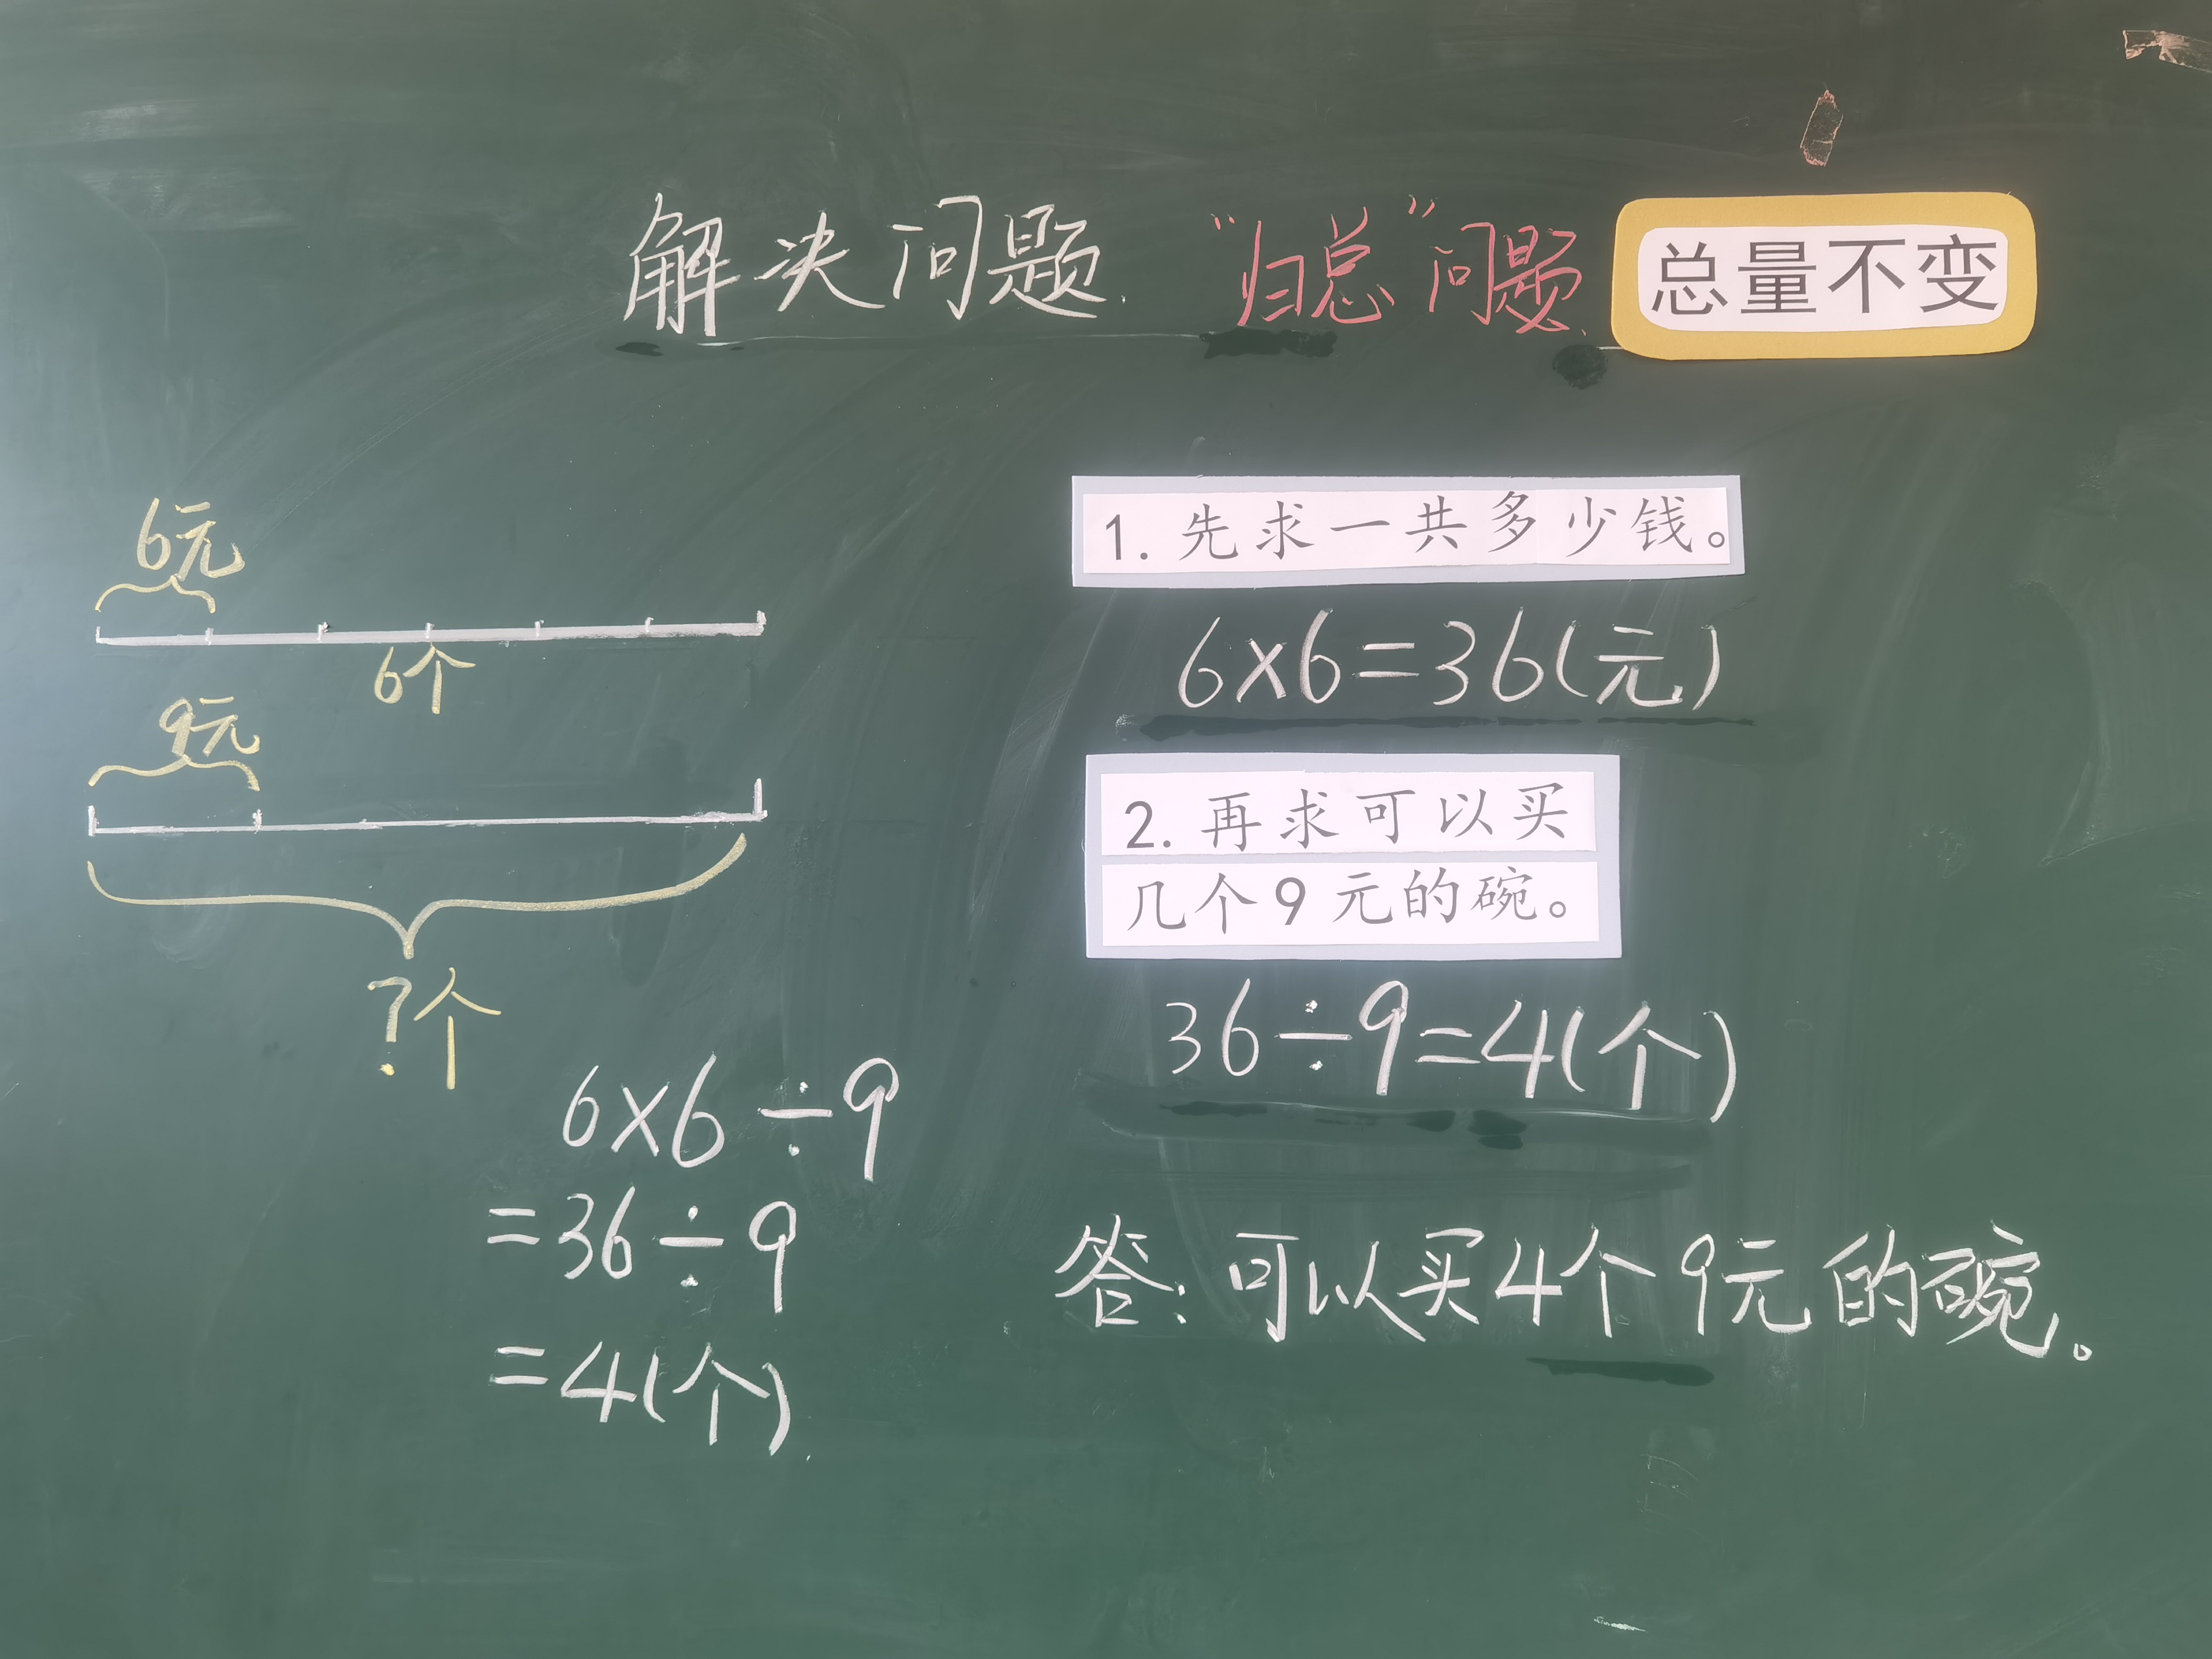 解决问题 “归总”问题 总量不变
6元
6个
9元
?个
6×6÷9
=36÷9
=4(个)
1. 先求一共多少钱。
6×6=36(元)
2. 再求可以买
几个9元的碗。
36÷9=4(个)
答:可以买4个9元的碗。